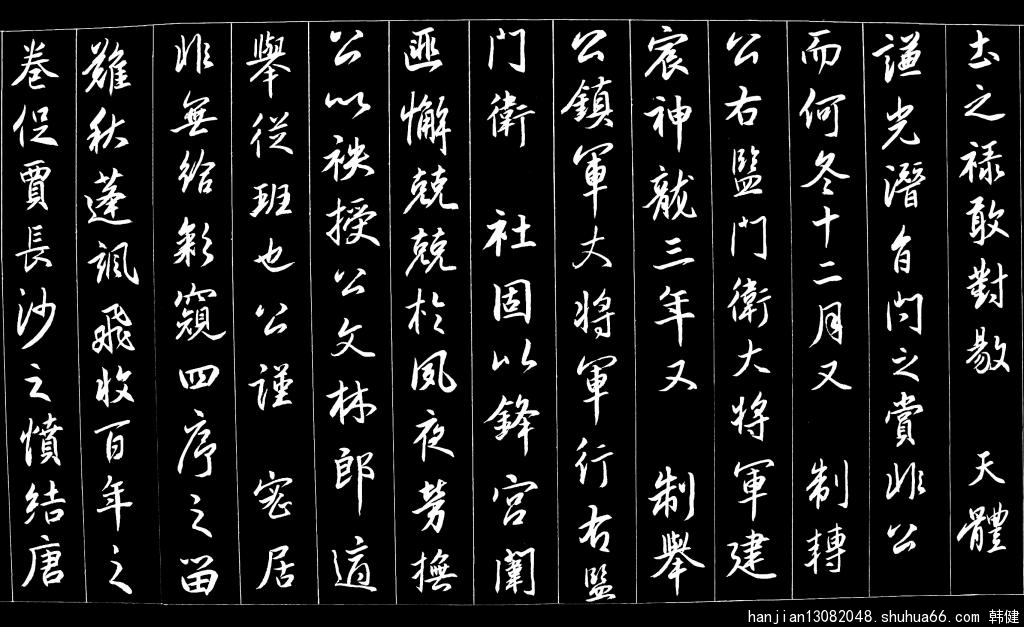 之禄敢對敭 天體
謙光潛自閂之賞非公
而何冬十二月又 制轉
公右監門衛大將軍建
宸神龍三年又 制舉
公鎮軍大將軍行右監
門衛 社固以鋒宮闈
匪懈兢兢於夙夜劳撫
公以袟授公文林郎適
舉從班也公謹 密居
非無給彩窺四序之留
難秋蓬颯飛收百年之
卷促賈長沙之憤結唐
hanjian13082048.shuhua66.com 韩健